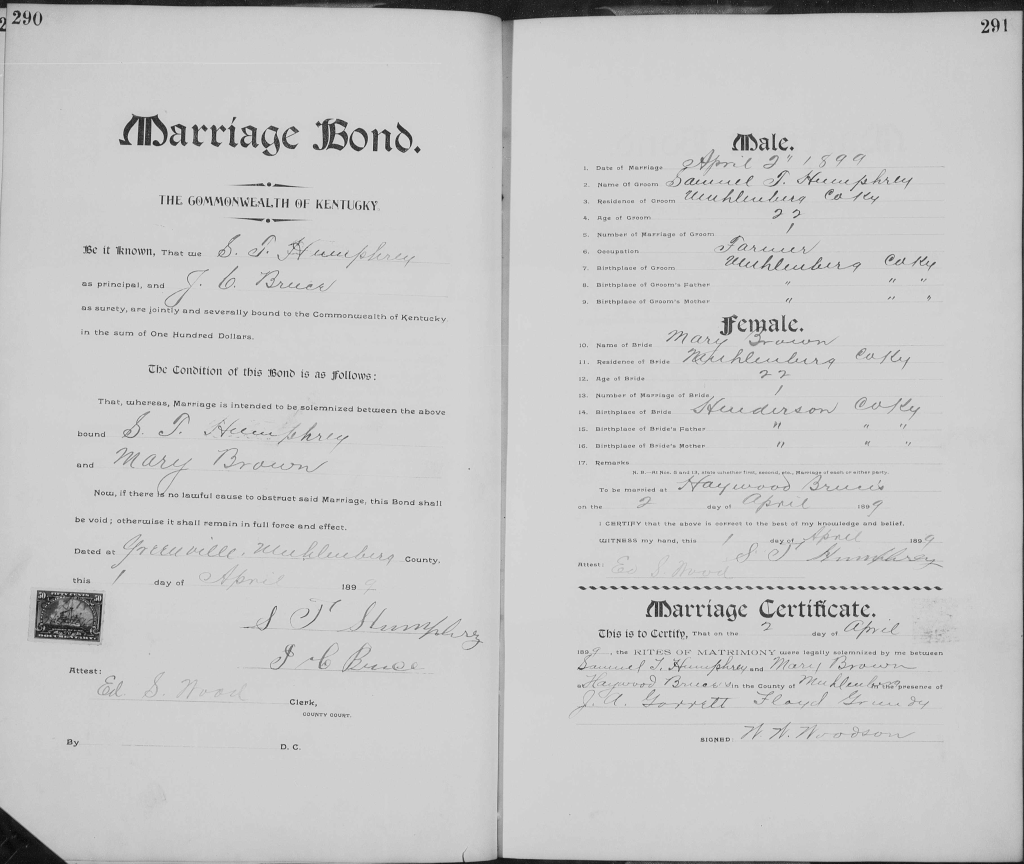 290
Marriage Bond.
THE COMMONWEALTH OF KENTUCKY.
Be it known, That we S. T. Humphrey
as principal, and J. C. Bruce
as surety, are jointly and severally bound to the Commonwealth of Kentucky
in the sum of One Hundred Dollars.
The Condition of this Bond is as Follows:
That, whereas, Marriage is intended to be solemnized between the above
bound S. T. Humphrey
and Mary Brown
Now, if there is no lawful cause to obstruct said Marriage, this Bond shall
be void; otherwise it shall remain in full force and effect.
Dated at Greenville, Muhlenberg County,
this 1 day of April 1899
S T Humphrey
J C Bruce
Attest:
Ed S. Wood
Clerk,
COUNTY COURT.
By D. C.
50 FIFTY CENTS 50
DOCUMENTARY
291
Male.
1. Date of Marriage April 2" 1899
2. Name Of Groom Samuel T. Humphrey
3. Residence of Groom Muhlenberg Co Ky
4. Age of Groom 22
5. Number of Marriage of Groom 1
6. Occupation Farmer
7. Birthplace of Groom Muhlenberg Co Ky
8. Birthplace of Groom's Father " " "
9. Birthplace of Groom's Mother " " "
Female.
10. Name of Bride Mary Brown
11. Residence of Bride Muhlenburg Co Ky
12. Age of Bride 22
13. Number of Marriage of Bride, 1
14. Birthplace of Bride Henderson Co Ky
15. Birthplace of Bride's Father " " "
16. Birthplace of Bride's Mother " " "
17. Remarks
N. B.—At Nos. 5 and 13, state whether first, second, etc., Marriage of each or either party.
To be married at Haywood Bruces
on the 2 day of April 1899
I CERTIFY that the above is correct to the best of my knowledge and belief.
WITNESS my hand, this 1 day of April 1899
S T Humphrey
Attest: Ed S. Wood
Marriage Certificate.
This is to Certify, That on the 2 day of April
1899, the RITES OF MATRIMONY were legally solemnized by me between
Samuel T. Humphrey and Mary Brown
Haywood Bruces in the County of Muhlenberg in the presence of
J. A. Garrett Floyd Grundy
SIGNED: W. W. Woodson